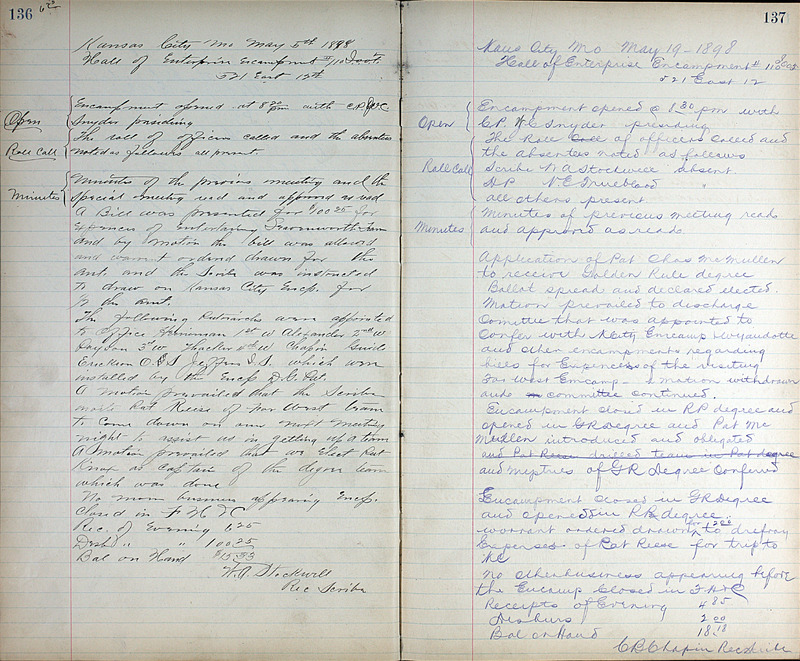 136
Kansas City Mo May 5th 1898
Hall of Enterprise Encampment #110
521 East 12th
Encampment opened at 8 pm with C.P.
Open
Snyder presiding
The roll of officers called and the absentees
Roll Call
noted as follows all present.
Minutes of the previous meeting and the
Minutes
special meeting read and approved as read
A Bill was presented for $100 25 for
Expences of Entertaining Team
and by motion the bill was allowed
and warrant ordered drawn for the
amt. and the Scribe was instructed
to draw on Kansas City Encp. for
½ the amt.
The following Patriarchs were appointed
to office 1st W Alexander 2nd W
3rd W 4th W Chapin Guide
Erickson O.S. I.S. which were
installed by the Encp D.D.
A motion prevailed that the Scribe
Pat Reese of Far West Team
to come down on our next meeting
night to assist us in getting up a team
A motion prevailed that we elect Pat
Knox as Captain of the degree team
which was done
No more business appearing Encp.
closed in F H & C
Rec. of Evening 6 25
" " 100 25
Bal on Hand
W.A. Stockwell
Rec Scribe
137
Kans City Mo May 19-1898
Hall of Enterprise Encampment #110
521 East 12
Encampment opened @ 8 30 pm with
Open
CP Snyder presiding
The Role of officers called and
the absentees noted as follows
Roll Call
Scribe W A Stockwell absent
H P N E Trueblood "
all others present
Minutes of previous meeting read
Minutes
and approved as read
Application of Pat Chas McMullen
to receive Golden Rule degree
Ballot spread and declared elected.
Motion prevailed to discharge
Comittee that was appointed to
Confer with K City Encamp & Wyandotte
and other encampments regarding
bills for Expences of the visiting
Far West Encamp - motion withdrawn
and committee continued.
Encampment closed in RP degree and
opened in GR Degree and Pat Mc
Mullen introduced and obligated
and Pat Reese drilled team in Pat degree
and mystries of GR Degree Confered
Encampment Closed in GR Degree
and opened in R.P. Degree.
warrant ordered drawn for 2 00 to defray
Expenses of Pat Reese for trip to
KC
No other business appearing before
the Encamp Closed in F H & C
Receipts of Evening 4 85
Disburs 2 00
Bal on Hand 18 18
C B Chapin Rec Scribe